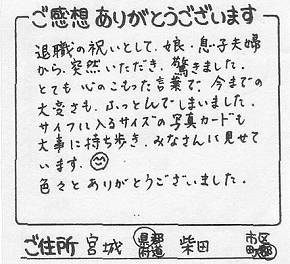 ご感想 ありがとうございます
退職の祝いとして、娘・息子夫婦
から、突然いただき、驚きました。
とても心のこもった言葉で、今までの
大変さも、ふっとんでしまいました。
サイフに入るサイズの写真カードも
大事に持ち歩き、みなさんに見せて
います。
色々とありがとうございました。
ご住所 宮城 都道府県 柴田 市区町郡